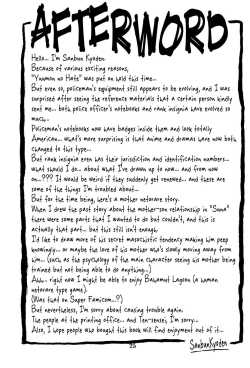 AFTERWORD
Hello... I'm Sanbun Kyoden.
Because of various exciting reasons,
"Yuumon no Hate" was put on hold this time...
But even so, policeman's equipment still appears to be evolving, and I was
surprised after seeing the reference materials that a certain person kindly
sent me... both police officer's notebooks and rank insignia have evolved so
much...
Policeman's notebooks now have badges inside them and look totally
American... what's more surprising is that anime and dramas have now both
changed to this type...
But rank insignia even has their jurisdiction and identification numbers...
what should I do... about what I've drawn up to now... and from now
on...??? It would be weird if they suddenly get renewed... and there are
some of the things I'm troubled about...
But for the time being, here's a mother netorare story.
When I drew the past story about the mother-son relationship in "Sona"
there were some parts that I wanted to do but couldn't, and this is
actually that part... but this still isn't enough.
I'd like to draw more of his secret masochistic tendency making him keep
knowingly... or maybe the love of his mother who's slowly moving away from
him... (such as the psychology of the main character seeing his mother being
trained but not being able to do anything...)
Ahh... right now I might be able to enjoy Bahamut Lagoon (a woman
netorare type game).
(Was that on Super Famicom...?)
But nevertheless, I'm sorry about causing trouble again.
The people at the printing office... and Ten-sensei, I'm sorry...
Also, I hope people who bought this book will find enjoyment out of it...
SanbunKyoden
25